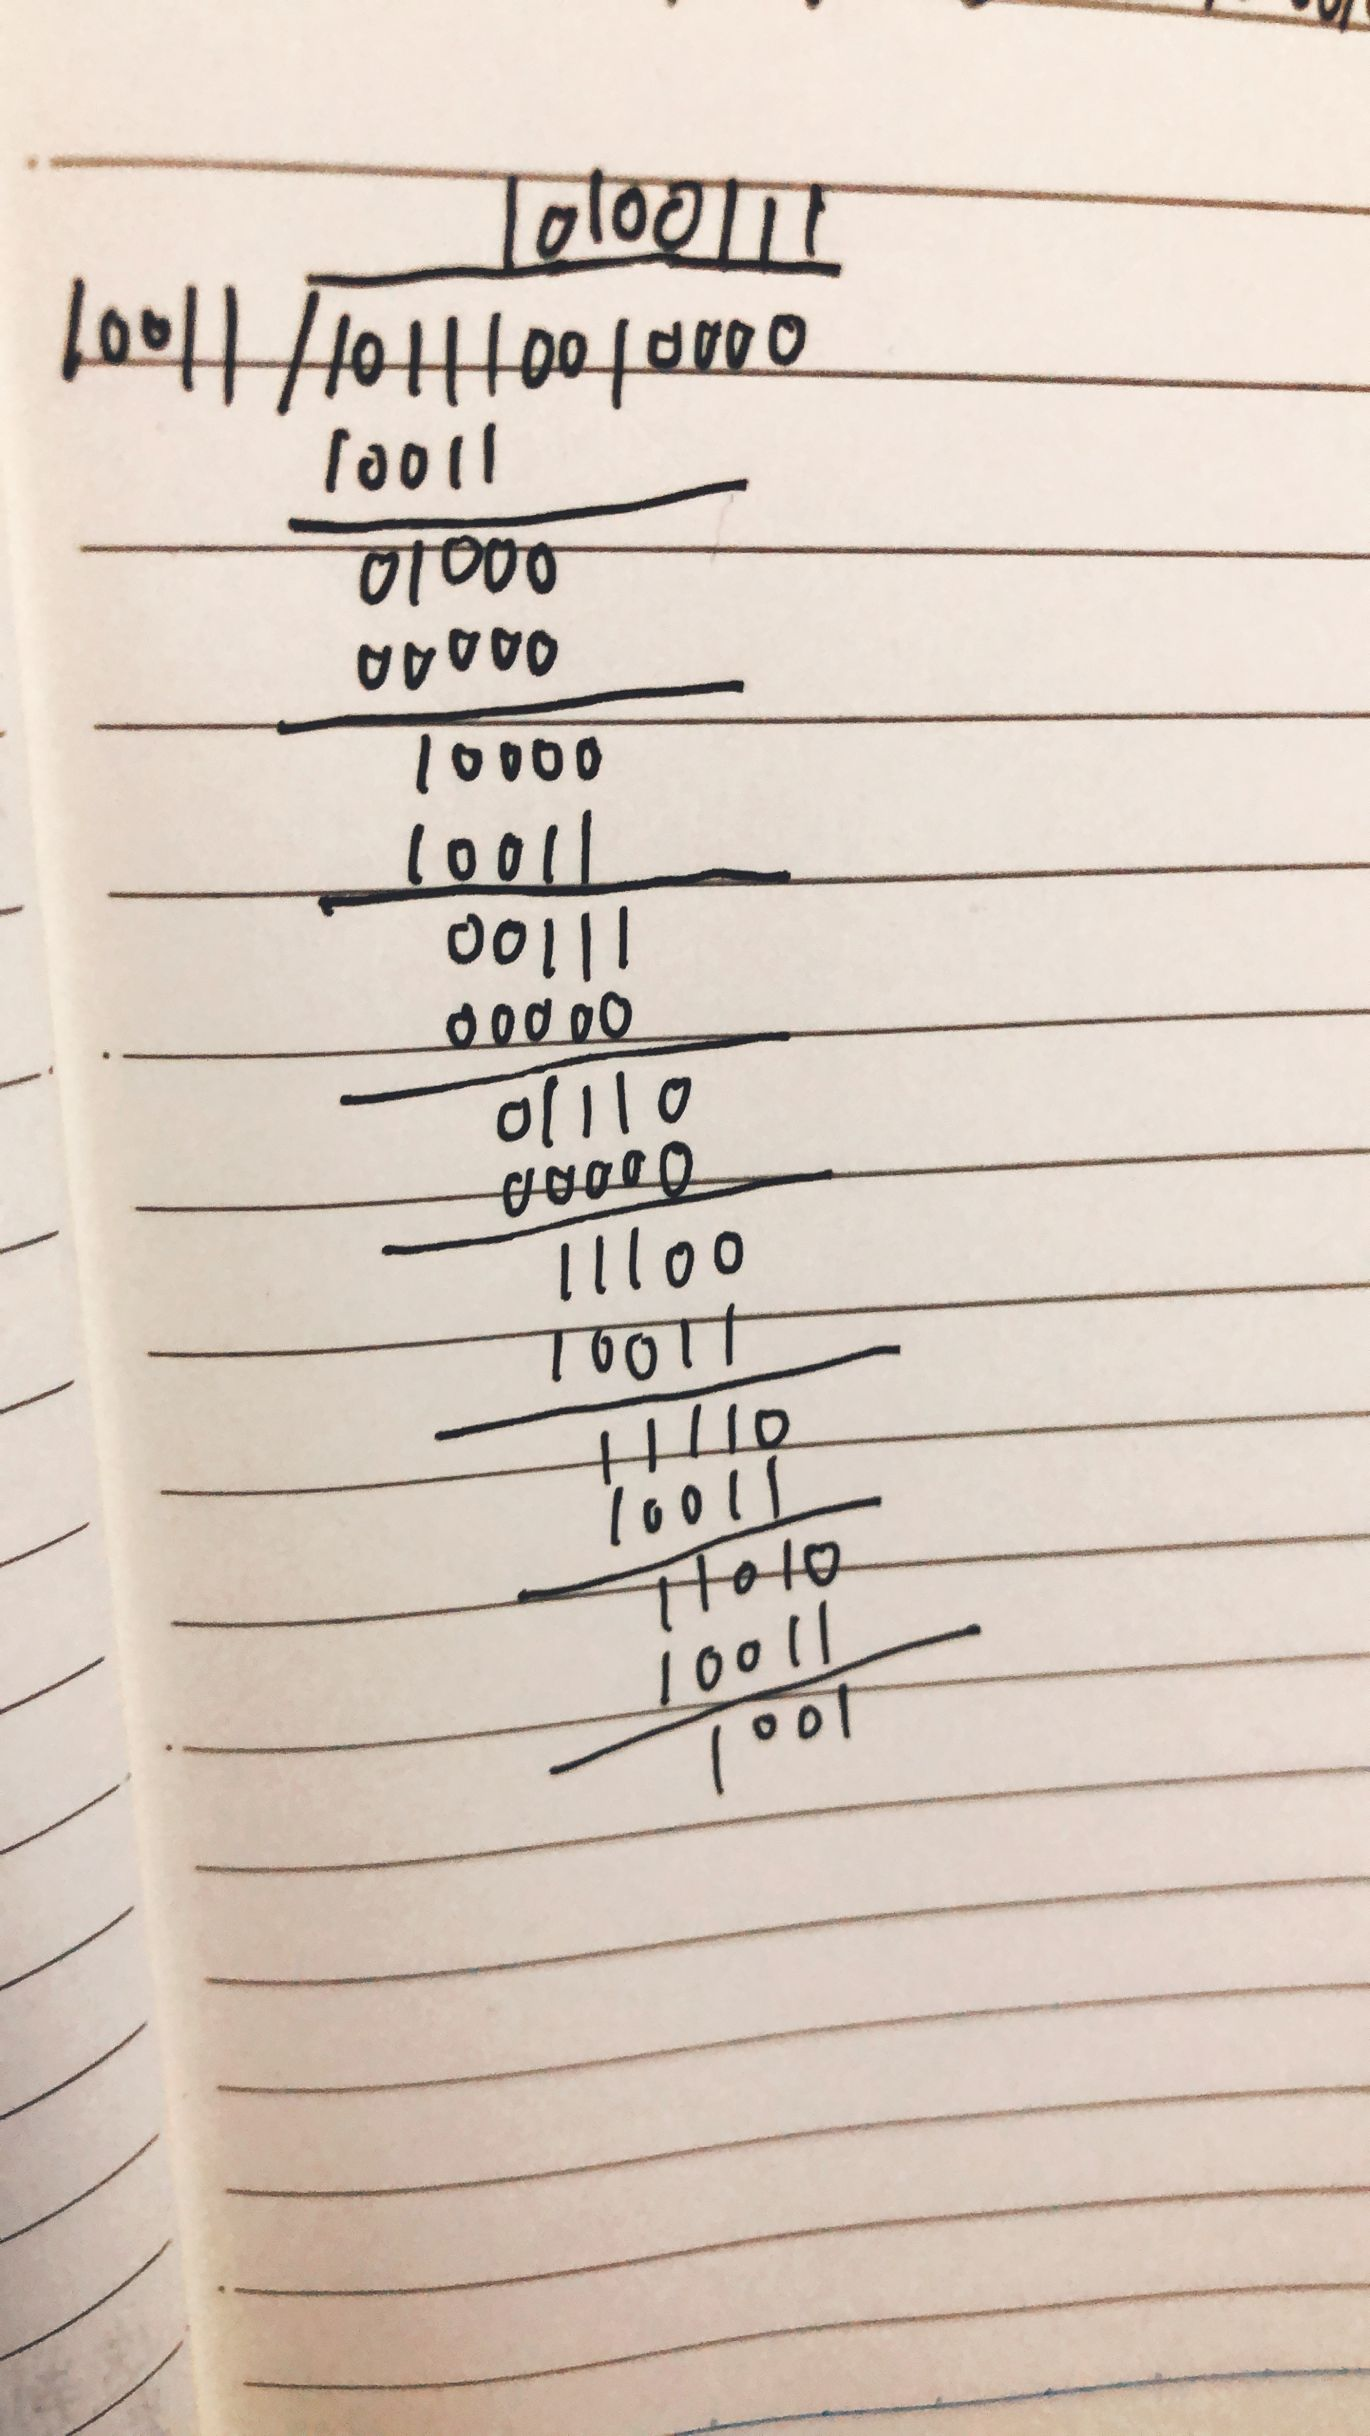 10100111
10011/101110010000
10011
01000
00000
10000
10011
00111
00000
01110
00000
11100
10011
11110
10011
11010
10011
1001